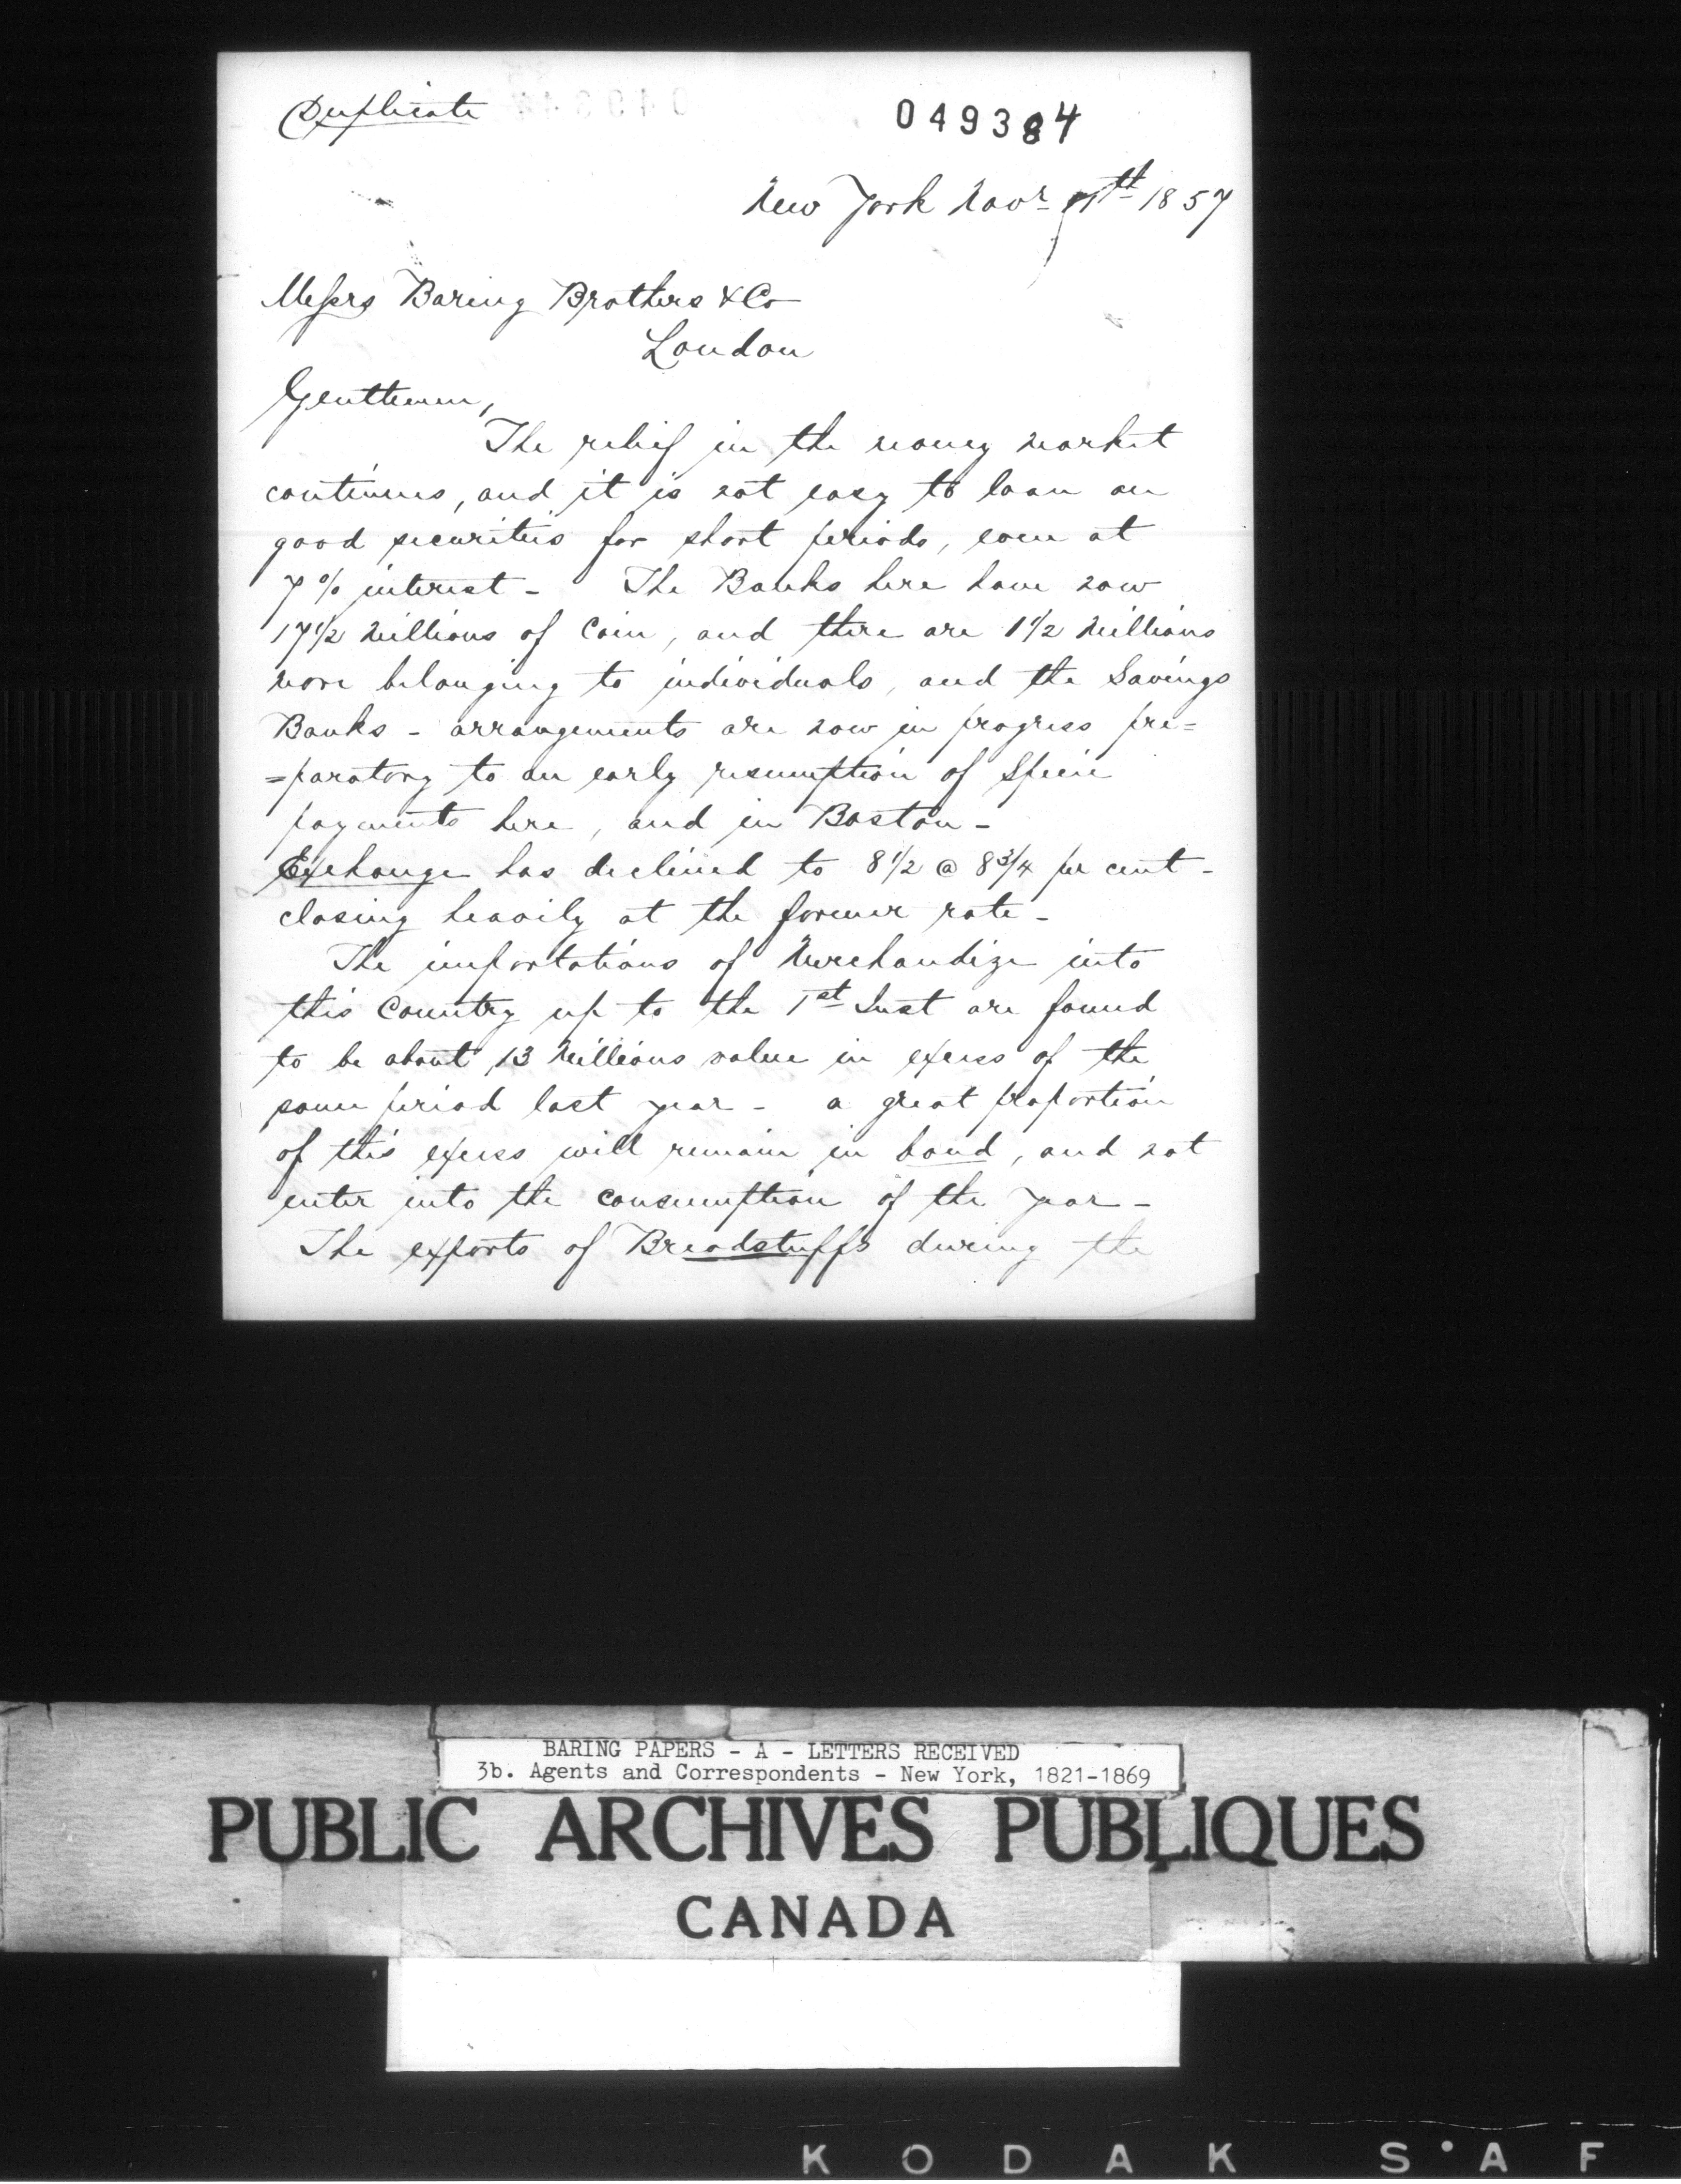 Duplicate
049384
New York Novr 17th 1857
Messrs Baring Brothers & Co
London
Gentlemen,
The relief in the money market
continues, and it is not easy to loan on
good securities for short periods, even at
7% interest - The Banks here have now
17 1/2 Millions of Coin, and there are 1 1/2 Millions
more belonging to individuals, and the Savings
Banks - arrangements are now in progress pre=
=paratory to an early resumption of Specie
payments here, and in Boston -
Exchange has declined to 8 1/2 @ 8 3/4 per cent -
closing heavily at the former rate -
The importations of Merchandize into
this Country up to the 1st Inst are found
to be about 13 Millions value in excess of the
same period last year - a great proportion
of this excess will remain in bond, and not
enter into the consumption of the year -
The exports of Breadstuffs during the
BARING PAPERS - A - LETTERS RECEIVED
3b. Agents and Correspondents - New York, 1821-1869
PUBLIC ARCHIVES PUBLIQUES
CANADA
KODAK S'AF